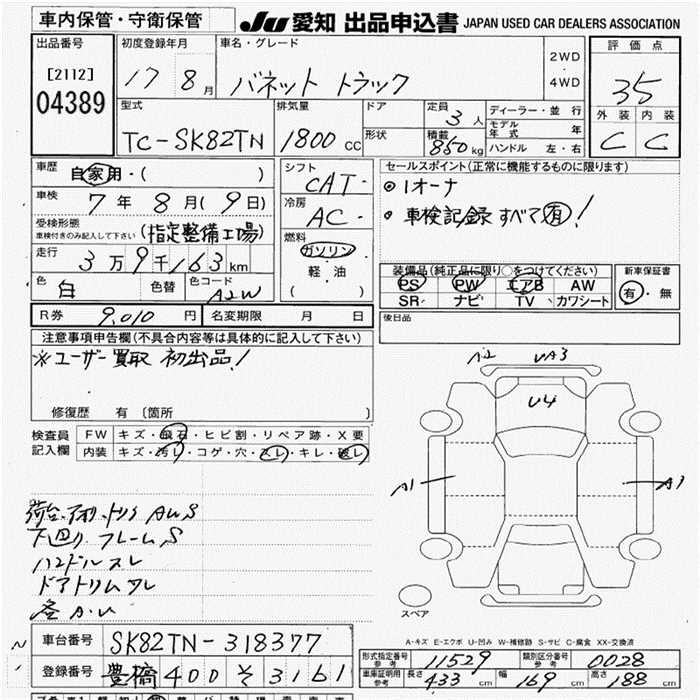 車内保管・守衛保管
JU 愛知 出品申込書 JAPAN USED CAR DEALERS ASSOCIATION
出品番号
[2112]
04389
初度登録年月
17 8月
車名・グレード
バネット トラック
2WD
・
4WD
評価点
3.5
外装 内装
C C
型式
TC-SK82TN
排気量
1800 cc
ドア
形状
定員 3人
積載 850kg
ディーラー・並行
モデル年式 年
ハンドル 左・右
車歴
自家用・( )
車検
7年 8月(9日)
受検形態
車検付きのみ記入して下さい
(指定整備工場)
走行
3万9千163km
色
白
色替
色コード
A2W
シフト
CAT
冷房
AC
燃料
ガソリン
軽油
( )
セールスポイント(正常に機能するものに限ります)
◎1オーナ
◎ 車検記録 すべて有!
装備品(純正品に限り○をつけてください)
PS PW エアB AW
SR ナビ TV カワシート
新車保証書
有・無
R券 9,010円
名変期限 月 日
後日品
注意事項申告欄(不具合内容等は具体的に記入して下さい)
※ユーザー買取 初出品!
修復歴 有 〔箇所 〕
検査員
記入欄
FW キズ・飛石・ヒビ割・リペア跡・X要
内装 キズ・汚れ・コゲ・穴・スレ・キレ・破レ
下廻り フレームS
ハンドルスレ
ドアトリムワレ
A2
UA3
U4
A1
A3
スペア
A-キズ E-エクボ U-凹み W-補修跡 S-サビ C-腐食 XX-交換済
車台番号 SK82TN-318377
登録番号 豊橋 400 そ 3161
形式指定番号
参考
11529
類別区分番号
参考
0028
車庫証明用
参考
長さ 433 cm
幅 169 cm
高さ 188 cm